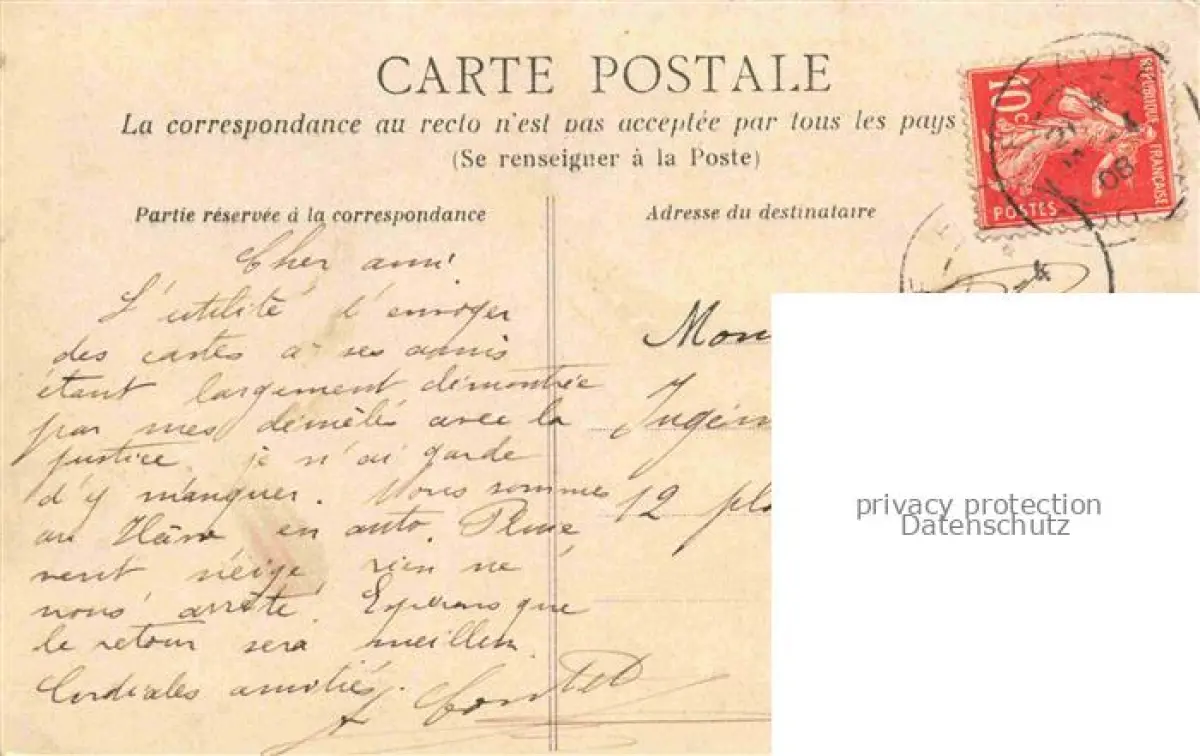 CARTE POSTALE
La correspondance au recto n'est pas acceptée par tous les pays
(Se renseigner à la Poste)
Partie réservée à la correspondance
Cher ami.
L'utilité d'envoyer
des cartes à ses amis
étant largement démontrée
par mes démêlés avec la
justice, je n'ai garde
d'y manquer. Nous sommes
au Hâvre en auto. Pluie
vent neige, rien ne
nous arrête. Espérons que
le retour sera meilleur.
Cordiales amitiés.
Adresse du destinataire
Mon
Ingén
12 pla
RÉPUBLIQUE FRANÇAISE
10c
POSTES
08
privacy protection
Datenschutz